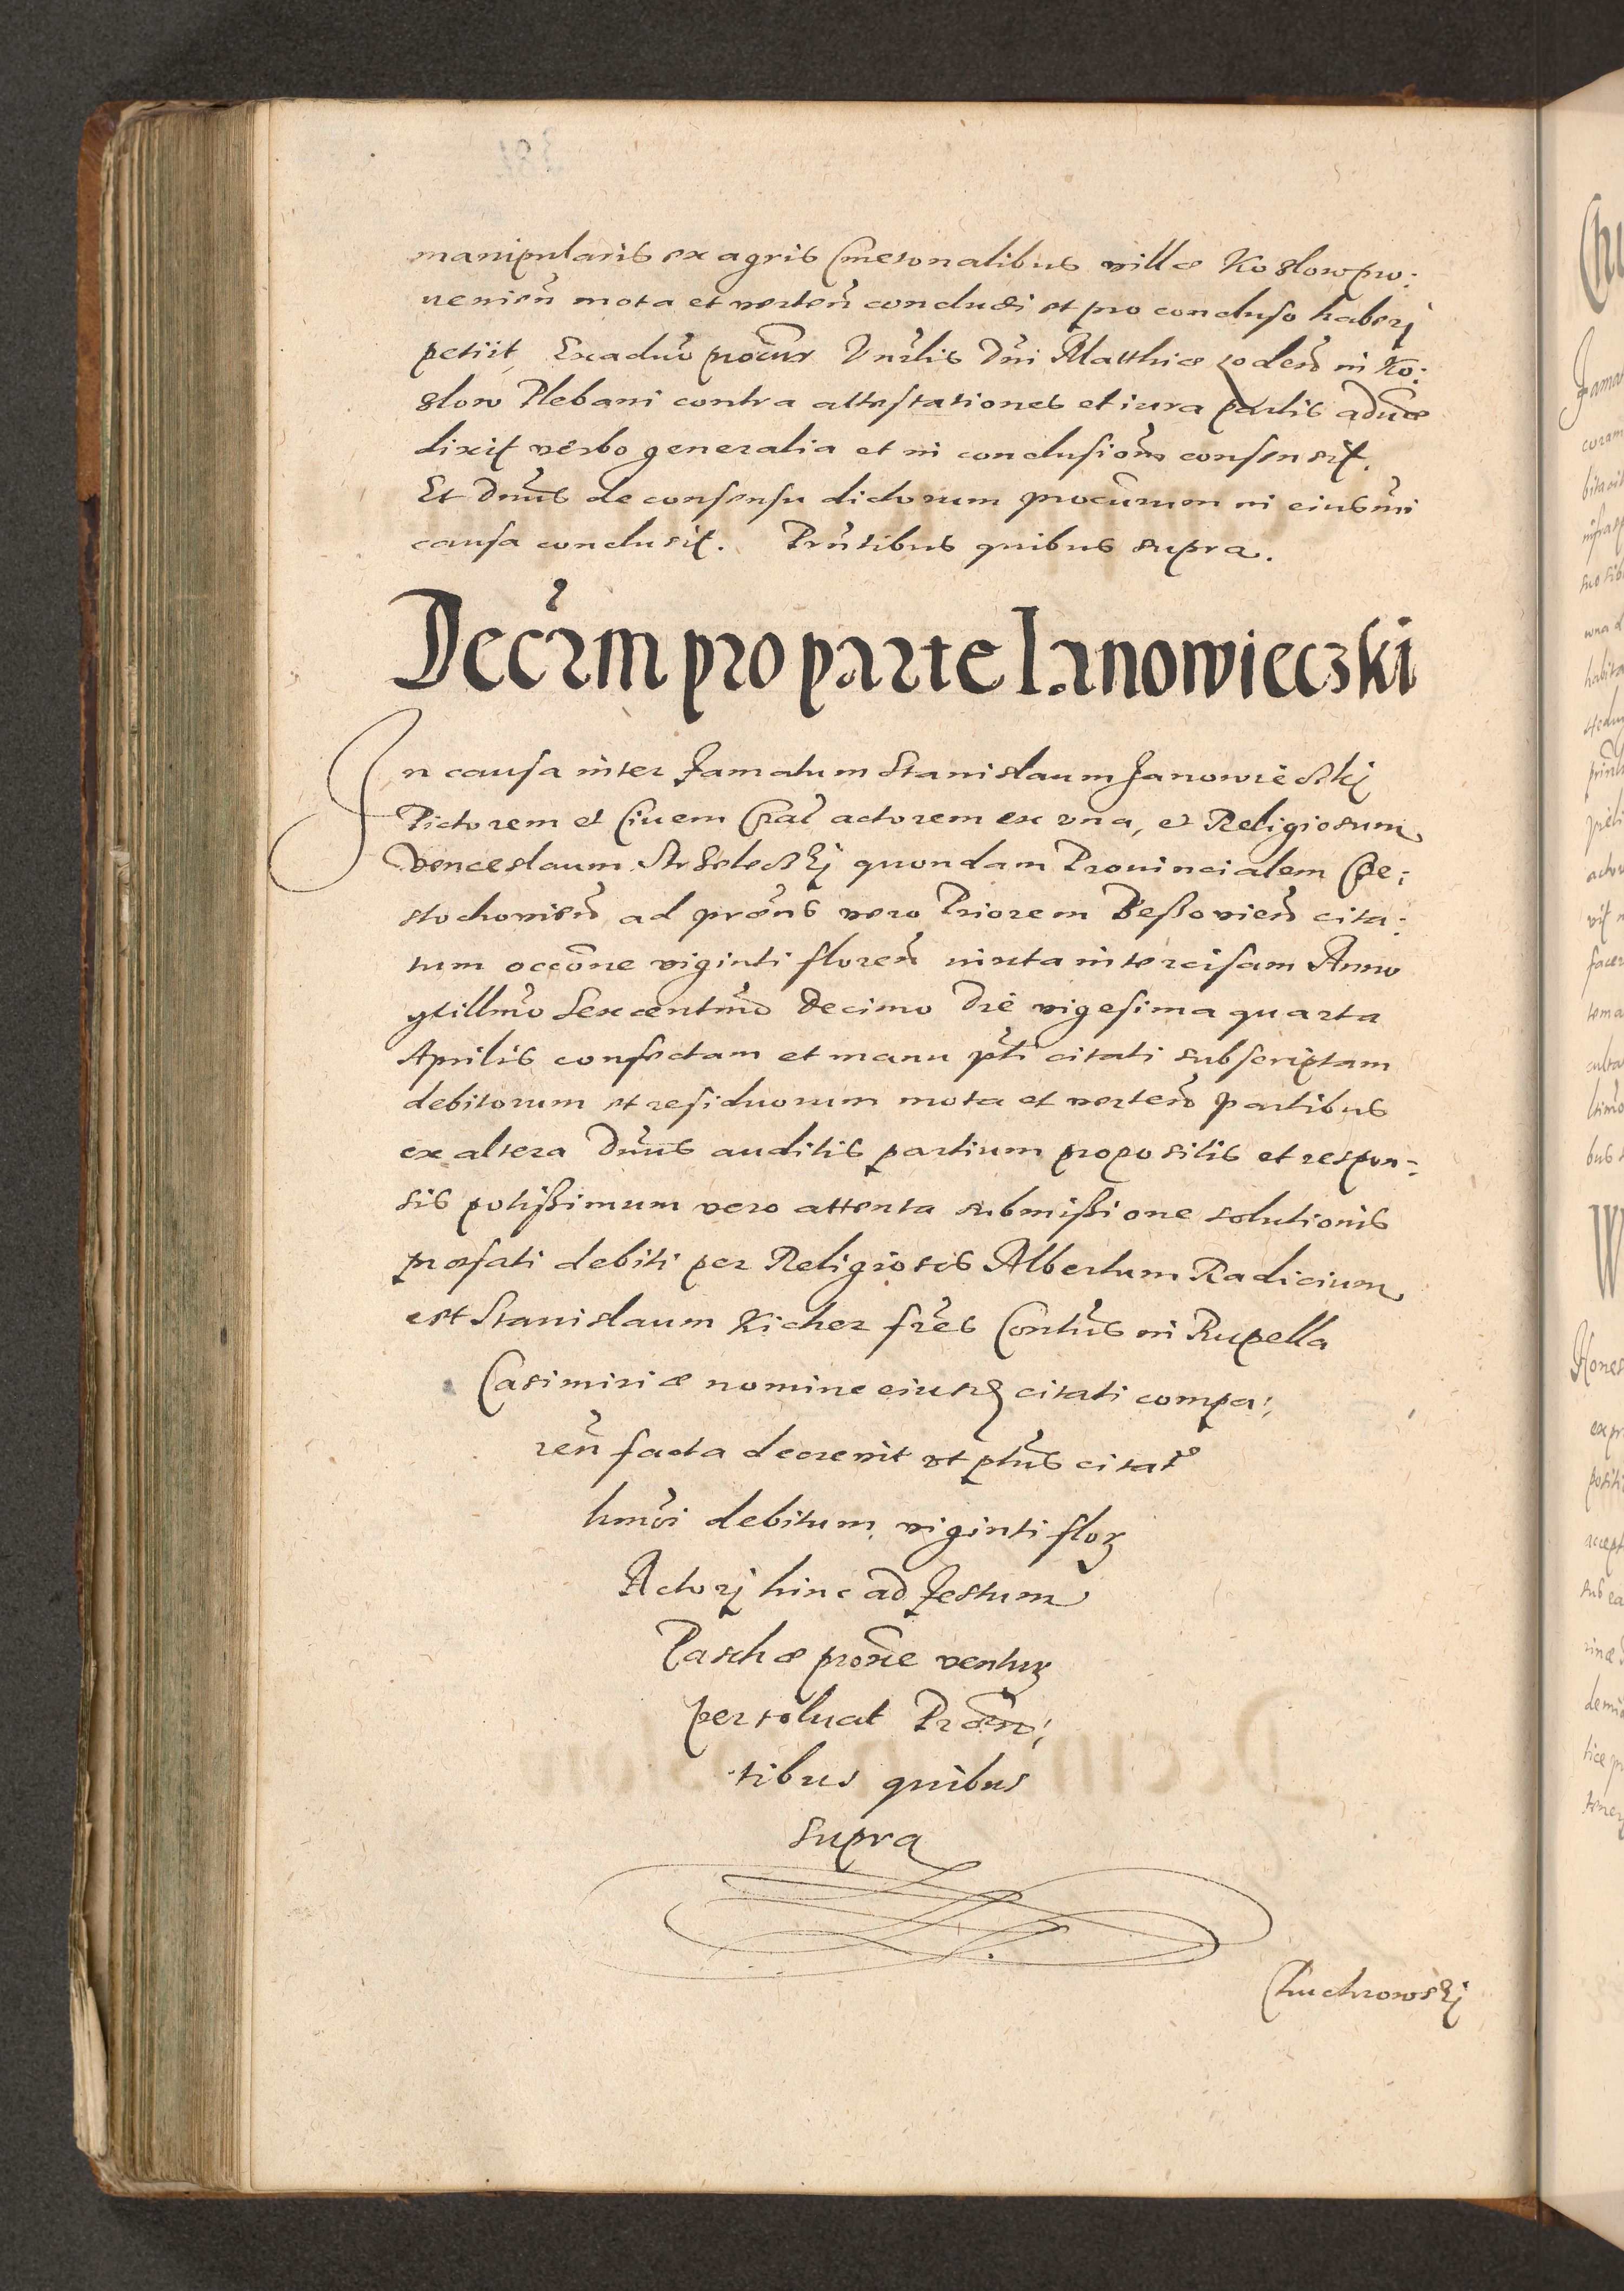 manipularis ex agris Cmetonalibus villæ Kozlow pro:
uenien̄ mota et verten̄ concludi et pro concluso haberj
petiit, Exaduo procur Vnrlis Dni Matthiæ eoden̄ in Ko:
zlow Plebani contra attestationes et iura partis aduæ
dixit verbo generalia et in conclusion̄e consensit.
Et Dnūs de consensu dictorum procūrum in eiusm̄i
causa conclusit. Prn̄tibus quibus supra.
Decr̄m pro parte Ianowieczki
In causa inter Famatum Stanislaum Janowieczkj
Pictorem et Ciuem Craĉ actorem ex vna, et Religiosum
Venceslaum Strzeleczkj quondam Prouincialem Cze:
stochouien̄ ad præns vero Priorem Beszouien̄ cita:
tum occōne viginti floren̄ iuxta intercisam Anno
Millm̄o Sexcentm̄o Decimo Die vigesima quarta
Aprilis confectam et manu pti citati subscriptam
debitorum et residuorum mota et verten̄ partibus
ex altera Dnūs auditis partium propositis et respon:
sis potißimum vero attenta submißione solutionis
præfati debiti per Religiosos Albertum Radicium
et Stanislaum Kicher frēs Contūs in Rupella
Casimiriæ nomine eiusd citati compa:
ren̄ facta decreuit vt ptūs citat9
hm̄oi debitum viginti flor
Actorj hinc ad Festum
Paschæ prōxe ventur
persoluat Præn:
tibus quibus
supra
Chuchrowskj